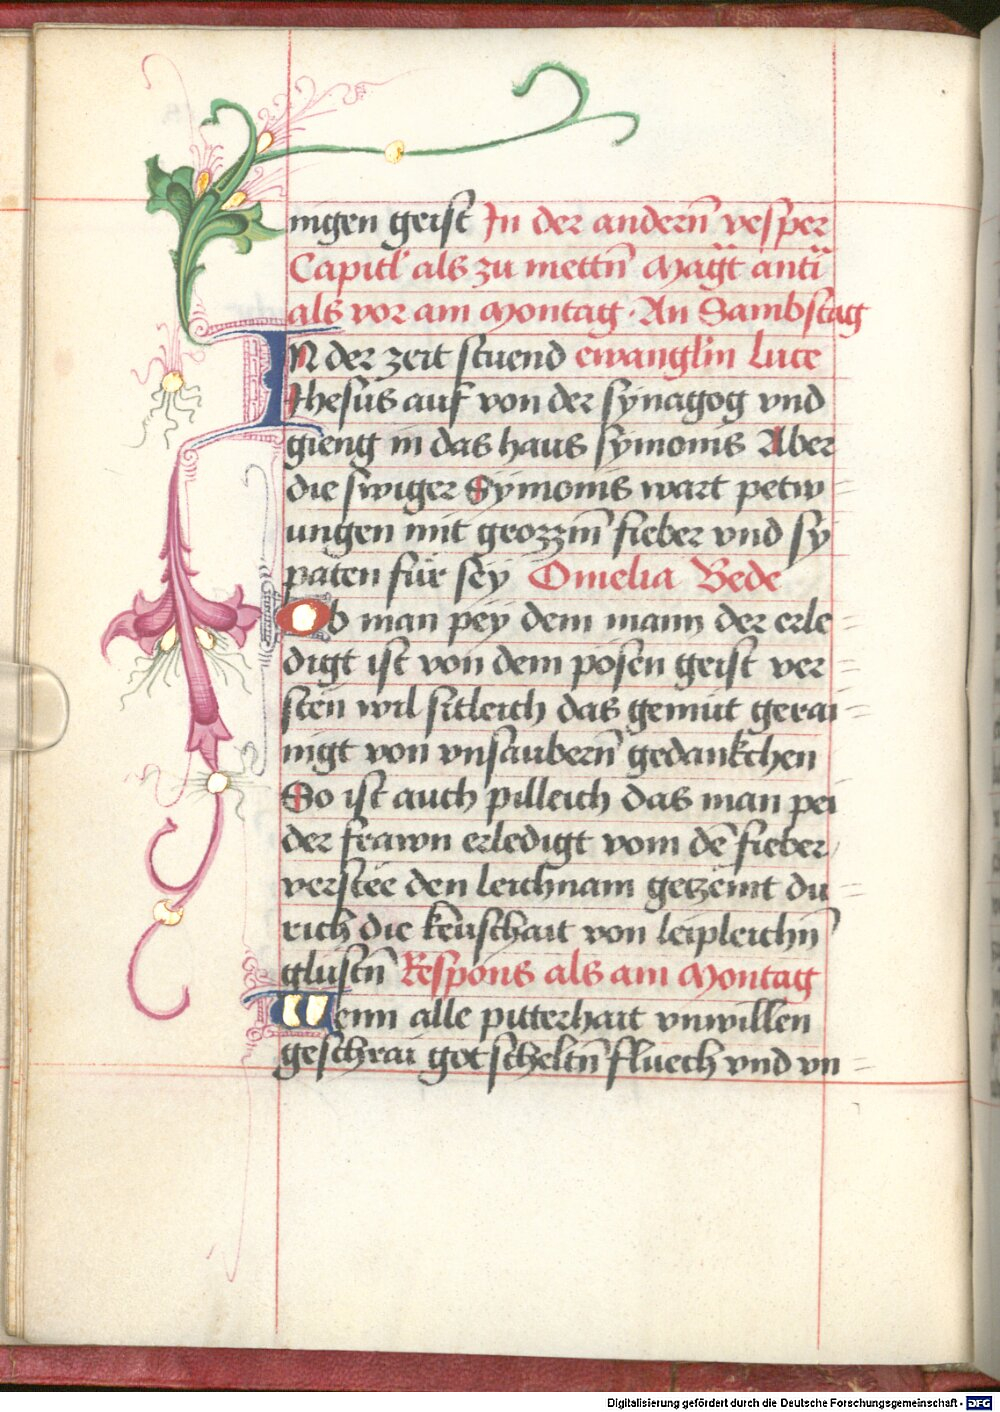 nigen geist In der andern̄ vesper
Capitl' als zu mettn̄ Mag̈t anti̅
als vor am Montag · An Sambstag
IN der zeit stuend ewangl'm luce
Jhesus auf von der sÿnagog vnd
gieng in das haus sÿmonis Aber
die swiger Sÿmonis wart petw=
ungen mit grozzm̄ fieber vnd sÿ
paten für sëÿ Omelia Bede
Ob man peÿ dem mann der erle=
digt ist von dem pösen geist ver=
sten wil sitleich das gemüt gerai=
nigt von vnsaubern̄ gedankchen
So ist auch pilleich das man pei
der frawn erledigt vom dē fieber
verstee den leichnam getzemt du=
rich die keuschait von leipleichn̄
glustn̄ Respons als am Montag
Wenn alle pitterhait vnwillen
geschrai got scheltn̄ fluech vnd vn=
Digitalisierung gefördert durch die Deutsche Forschungsgemeinschaft - DFG